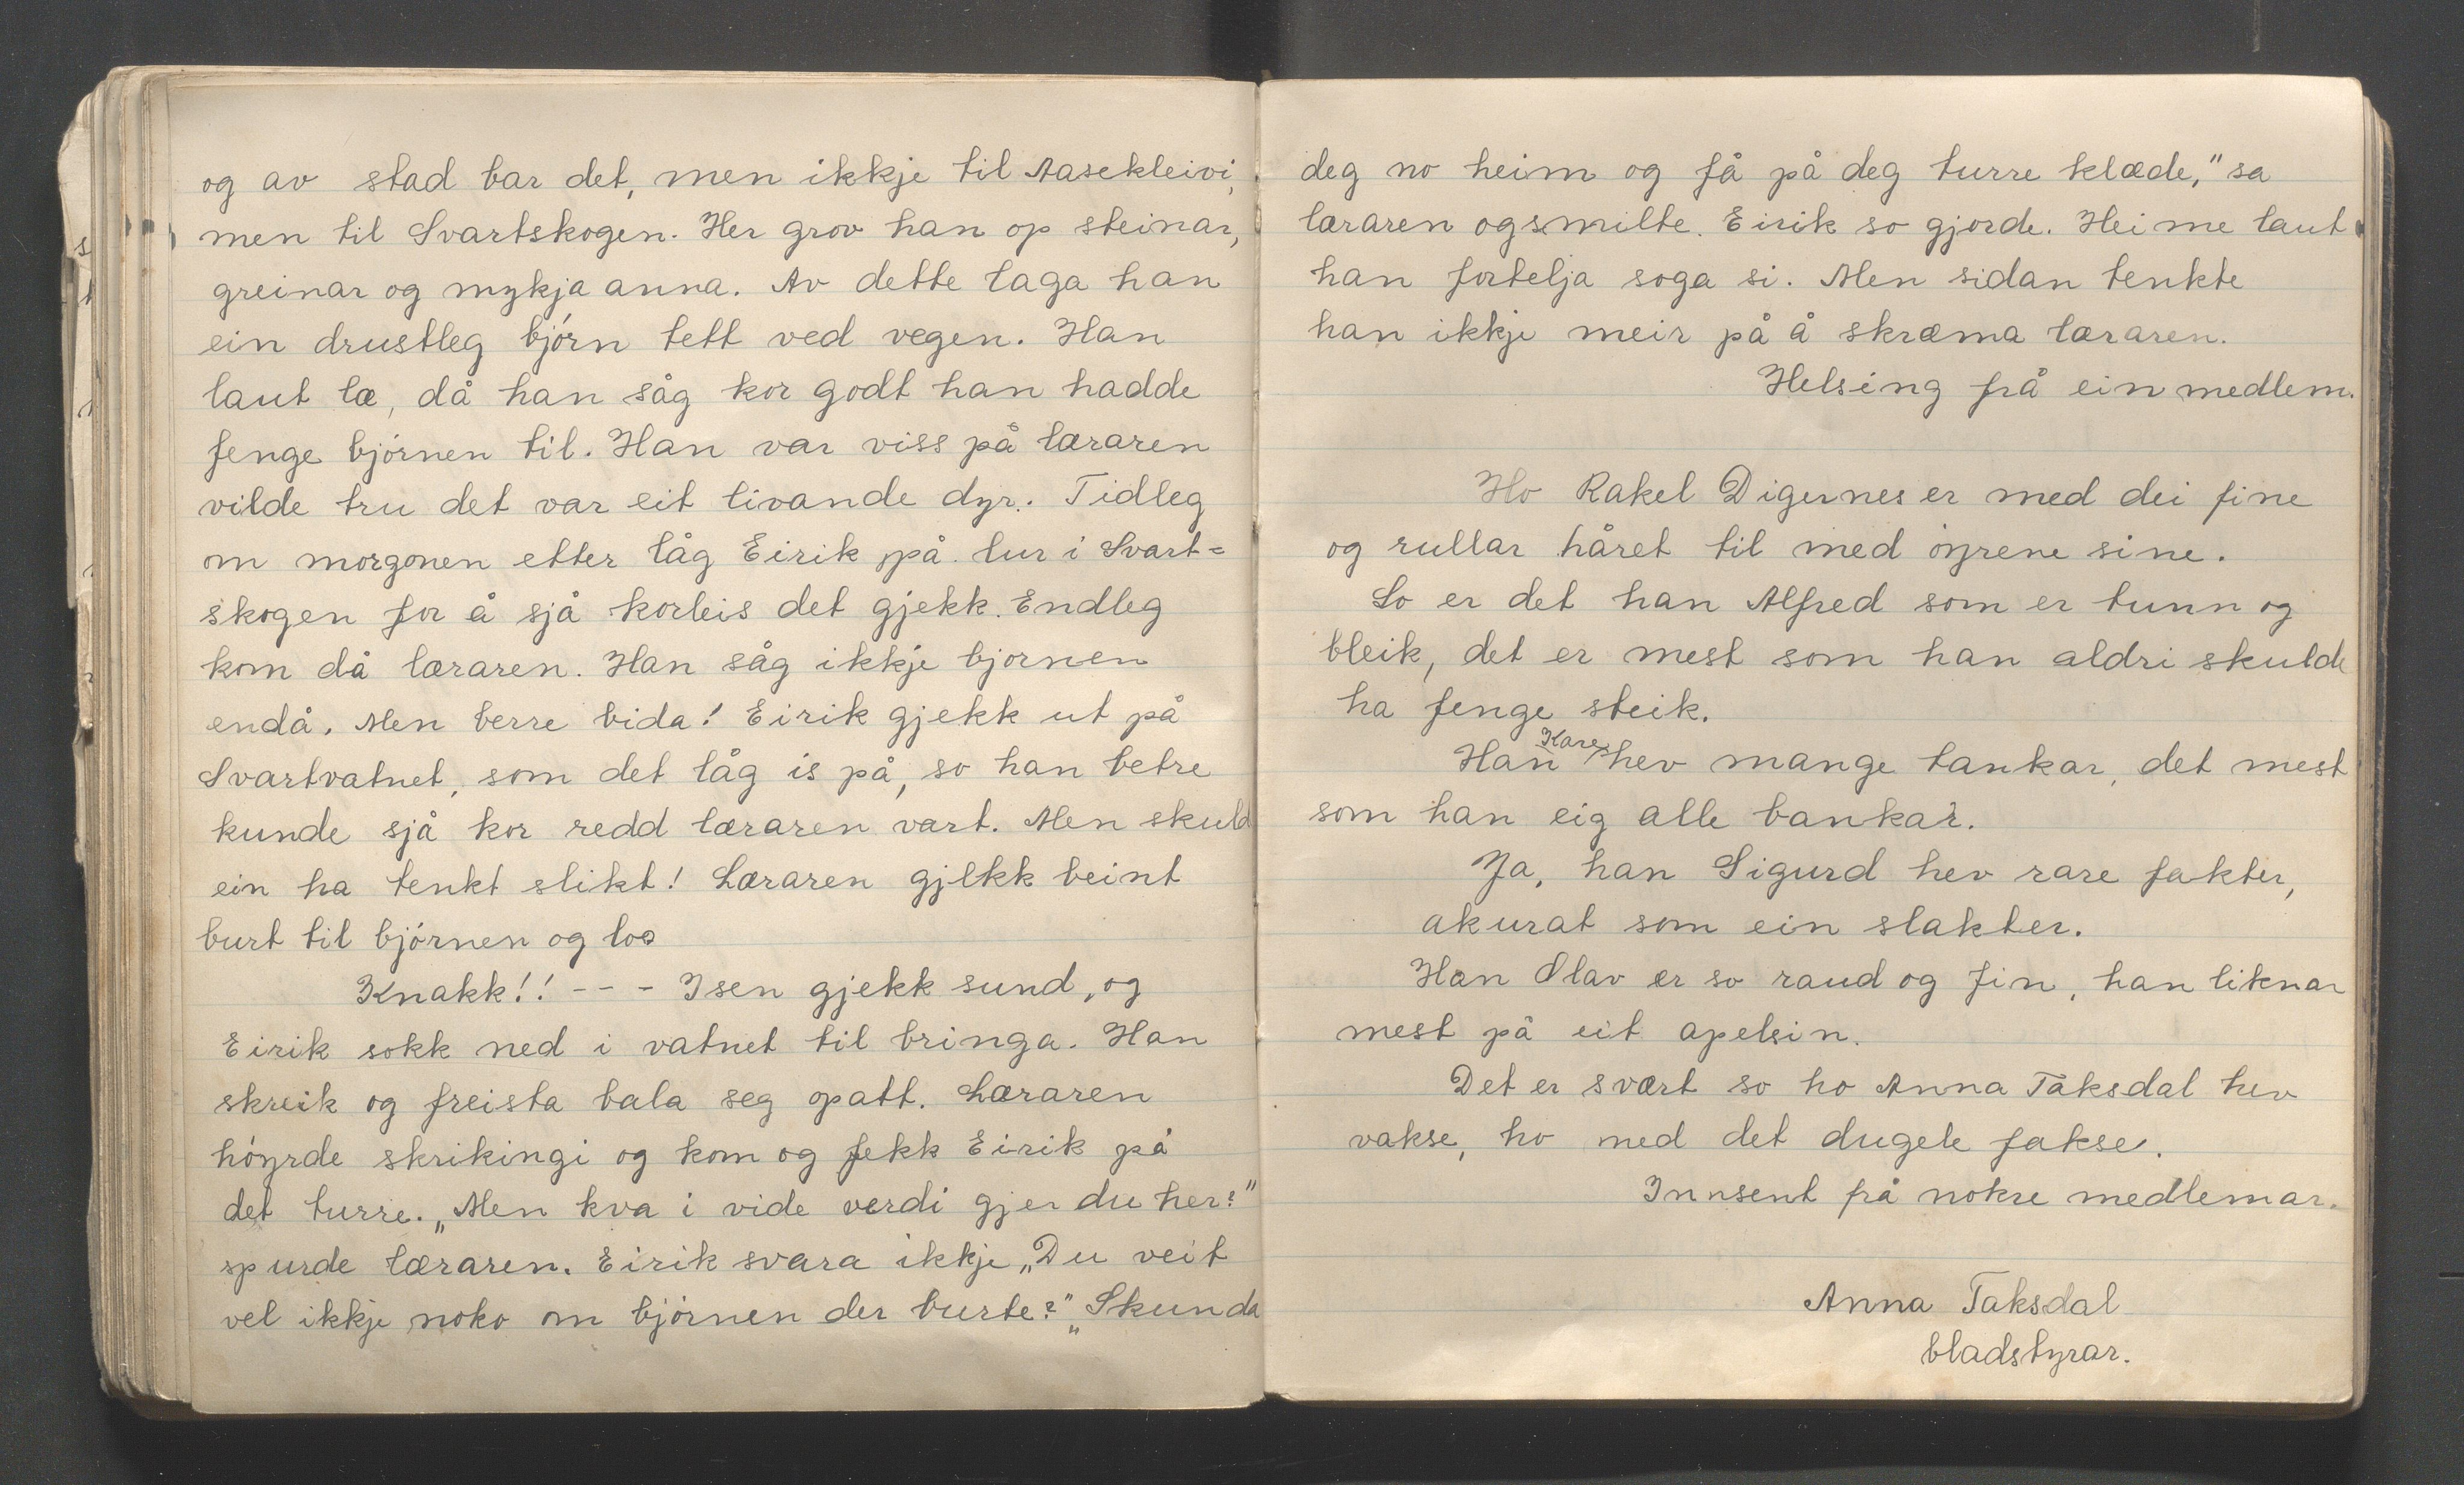 og av stad bar det, men ikkje til Aasekleivi,
men til Svartskogen. Her grov han op steinar,
greinar og mykja anna. Av dette laga han
ein drustleg björn tett ved vegen. Han
laut læ, då han såg kor godt han hadde
fenge björnen til. Han var viss på læraren
vilde tru det var eit livande dyr. Tidleg
om morgonen etter låg Eirik på lur i Svart=
skogen for å sjå korleis det gjekk. Endleg
kom då læraren. Han såg ikkje bjornen
endå. Men berre bida! Eirik gjekk ut på
Svartvatnet, som det låg is på, so han betre
kunde sjå kor redd læraren vart. Men skuld
ein ha tenkt slikt! Læraren gjekk beint
burt til björnen og loo
Knakk!! --- Isen gjekk sund, og
Eirik sokk ned i vatnet til bringa. Han
skreik og freista bala seg opatt. Læraren
höyrde skrikingi og kom og fekk Eirik på
det turre. „Men kva i vide verdi gjer du her?"
spurde læraren. Eirik svara ikkje „Du veit
vel ikkje noko om björnen der burte?" „Skunda
deg no heim og få på deg turre klæde," sa
læraren og smilte. Eirik so gjorde. Heime laut
han fortelja soga si. Men sidan tenkte
han ikkje meir på å skræma læraren.
Helsing frå ein medlem.
Ho Rakel Digernes er med dei fine
og rullar håret til med öyrene sine.
So er det han Alfred som er tunn og
bleik, det er mest som han aldri skulde
ha fenge steik.
Han Kare hev mange tankar, det mest
som han eig alle bankar.
Ja, han Sigurd hev rare fakter,
akurat som ein slakter.
Han Olav er so raud og fin, han liknar
mest på eit apelsin.
Det er svært so ho Anna Taksdal hev
vakse, ho med det dugele fakse.
Innsent frå nokre medlemar.
Anna Taksdal
bladstyrar.